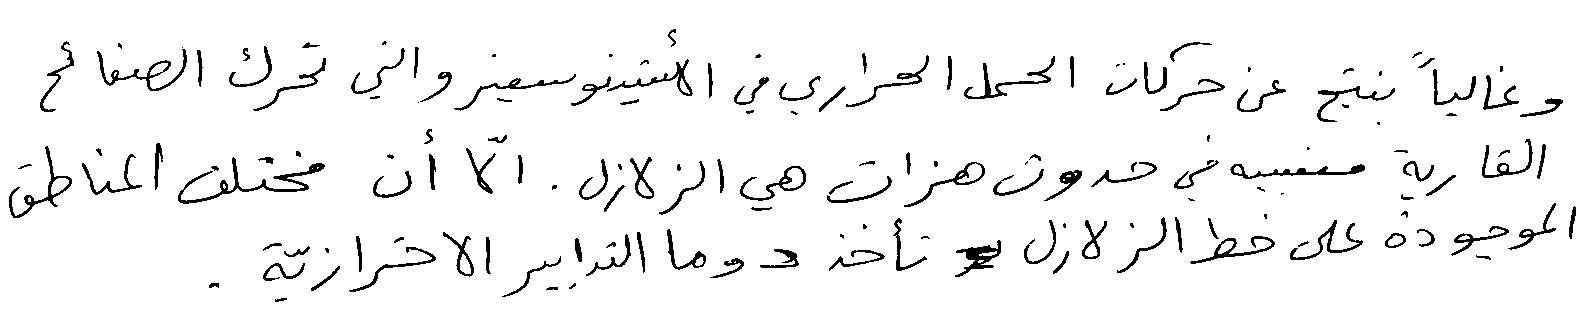 وغالباً ينتج عن حركات الحمل الحراري في الأستينوسفير والتي تحرك الصفائح
القارية متسببه في حدوث هزات هي الزلازل . الّا أن مختلف المناطق
الموجودة على خط الزلازل تأخذ دوما التدابير الاحترازيّة .